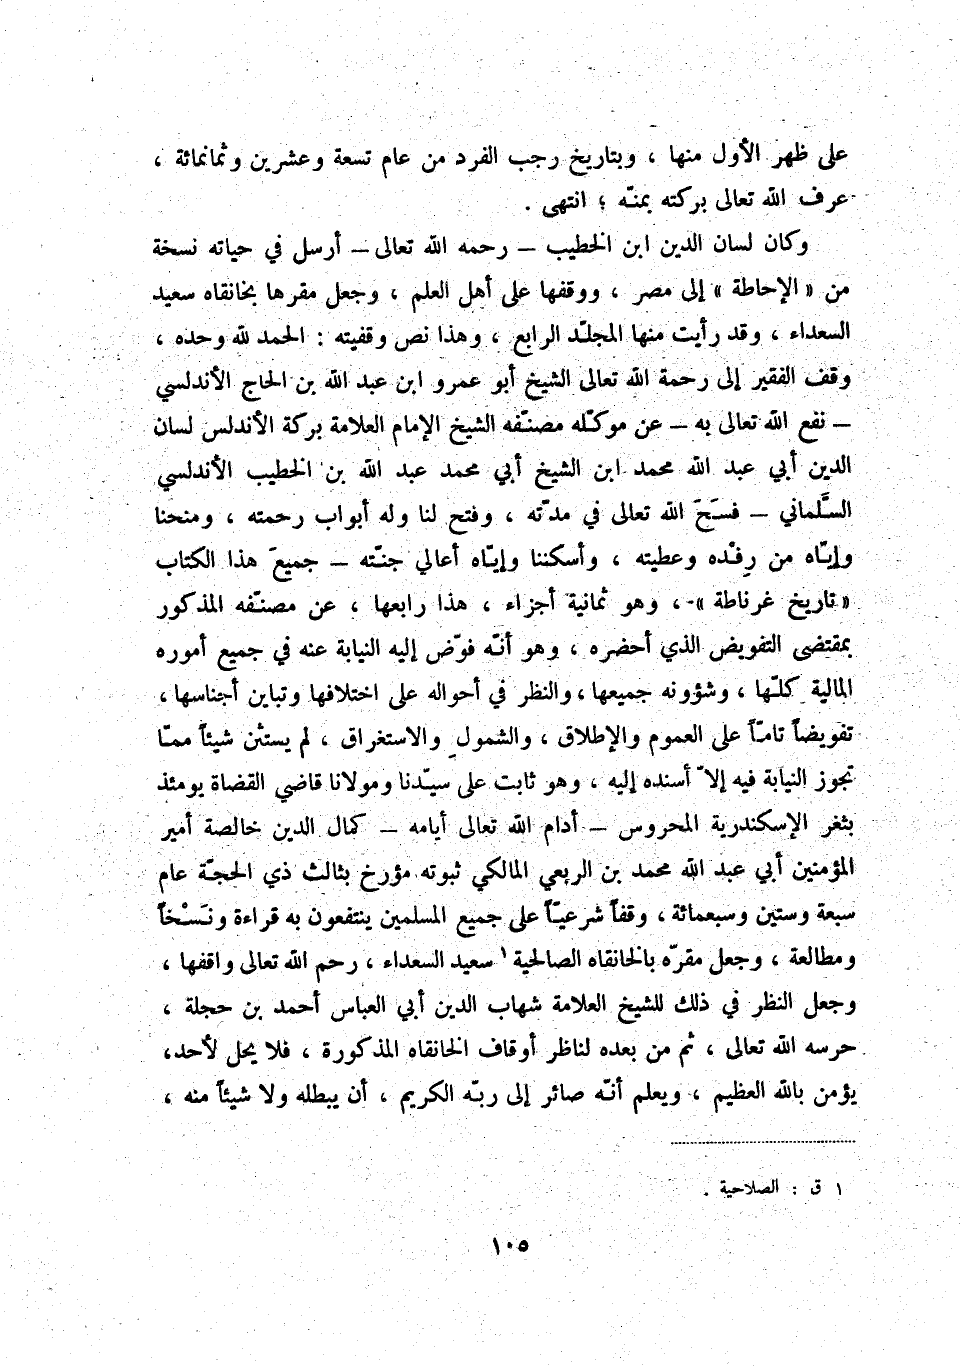 على ظهر الأول منها ، وبتاريخ رجب الفرد من عام تسعة وعشرين وثمانمائة ،
عرف الله تعالى بركته بمنّه ؛ انتهى .
وكان لسان الدين ابن الخطيب – رحمه الله تعالى – أرسل في حياته نسخة
من « الإحاطة » إلى مصر ، ووقفها على أهل العلم ، وجعل مقرها بخانقاه سعيد
السعداء ، وقد رأيت منها المجلّد الرابع ، وهذا نص وقفيته : الحمد لله وحده ،
وقف الفقير إلى رحمة الله تعالى الشيخ أبو عمرو ابن عبد الله بن الحاج الأندلسي
– نفع الله تعالى به – عن موكّله مصنّفه الشيخ الإمام العلامة بركة الأندلس لسان
الدين أبي عبد الله محمد ابن الشيخ أبي محمد عبد الله بن الخطيب الأندلسي
السَّلماني – فسَحَ الله تعالى في مدّته ، وفتح لنا وله أبواب رحمته ، ومنحنا
وإيّاه من رِفْده وعطيته ، وأسكننا وإيّاه أعالي جنّته – جميعَ هذا الكتاب
« تاريخ غرناطة » ، وهو ثمانية أجزاء ، هذا رابعها ، عن مصنّفه المذكور
بمقتضى التفويض الذي أحضره ، وهو أنّه فوّض إليه النيابة عنه في جميع أموره
المالية كلّها ، وشؤونه جميعها ، والنظر في أحواله على اختلافها وتباين أجناسها ،
تفويضاً تامّاً على العموم والإطلاق ، والشمول والاستغراق ، لم يستثن شيئاً ممّا
تجوز النيابة فيه إلاّ أسنده إليه ، وهو ثابت على سيّدنا ومولانا قاضي القضاة يومئذ
بثغر الإسكندرية المحروس – أدام الله تعالى أيامه – كمال الدين خالصة أمير
المؤمنين أبي عبد الله محمد بن الربعي المالكي ثبوته مؤرخ بثالث ذي الحجّة عام
سبعة وستين وسبعمائة ، وقفاً شرعيّاً على جميع المسلمين ينتفعون به قراءة ونَسْخاً
ومطالعة ، وجعل مقرّه بالخانقاه الصالحية ١ سعيد السعداء ، رحم الله تعالى واقفها ،
وجعل النظر في ذلك للشيخ العلامة شهاب الدين أبي العباس أحمد بن حجلة ،
حرسه الله تعالى ، ثم من بعده لناظر أوقاف الخانقاه المذكورة ، فلا يحل لأحد ،
يؤمن بالله العظيم ، ويعلم أنّه صائر إلى ربّه الكريم ، أن يبطله ولا شيئاً منه ،
١ ق : الصلاحية .
١٠٥